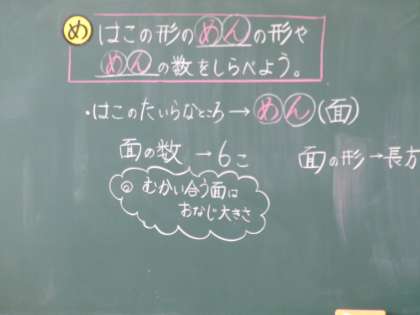 め はこの形のめんの形や
めんの数をしらべよう。
・はこのたいらなところ→めん(面)
面の数→6こ
面の形→長方
むかい合う面は
おなじ大きさ